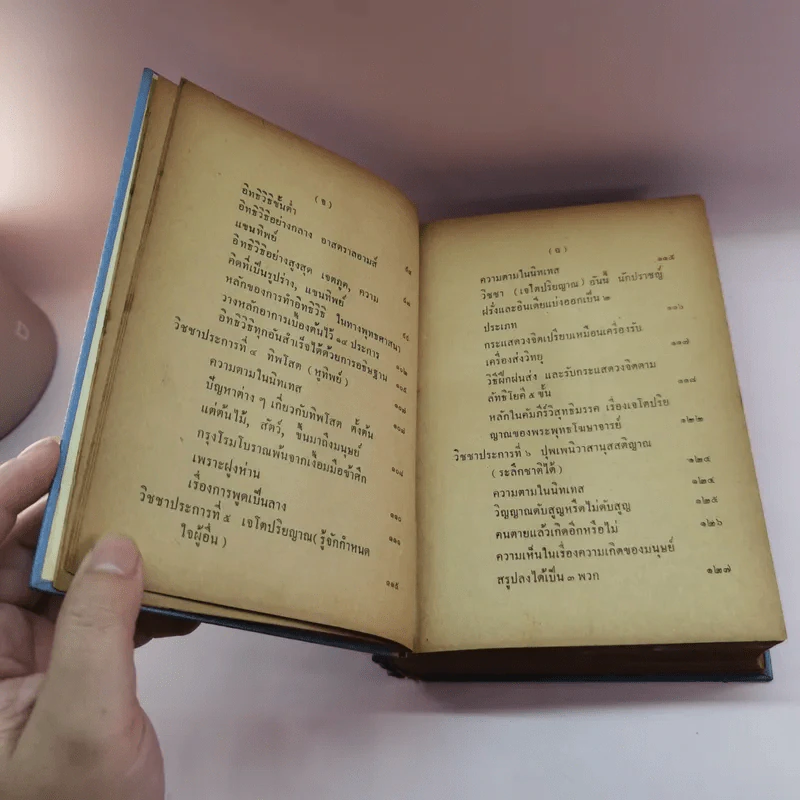 (ข)
อิทธิวิธีขั้นต่ำ
อิทธิวิธีอย่างกลาง อาสตราลฮามส์
แขนทิพย์
อิทธิวิธีอย่างสูงสุด เจตภูต, ความ
คิดที่เป็นรูปร่าง, แขนทิพย์
หลักของการทำอิทธิวิธี ในทางพุทธศาสนา
วางหลักอาการเบื้องต้นไว้ ๑๔ ประการ
อิทธิวิธีทุกอันสำเร็จได้ด้วยการอธิษฐาน ๑๐๒
วิชชาประการที่ ๔ ทิพโสต (หูทิพย์) ๑๐๕
ความตามในนิทเทส
ปัญหาต่าง ๆ เกี่ยวกับทิพโสต ตั้งต้น
แต่ต้นไม้, สัตว์, ขึ้นมาถึงมนุษย์ ๑๐๘
กรุงโรมโบราณพ้นจากเงื้อมมือข้าศึก
เพราะฝูงห่าน ๑๐๘
เรื่องการพูดเป็นลาง ๑๑๐
วิชชาประการที่ ๕ เจโตปริยญาณ(รู้จักกำหนด
ใจผู้อื่น) ๑๑๕
(ค)
ความตามในนิทเทส ๑๑๕
วิชชา (เจโตปริยญาณ) อันนี้ นักปราชญ์
ฝรั่งและอินเดียแบ่งออกเป็น ๒
ประเภท ๑๑๖
กระแสดวงจิตเปรียบเหมือนเครื่องรับ
เครื่องส่งวิทยุ ๑๑๗
วิธีฝึกฝนส่ง และรับกระแสดวงจิตตาม
ลัทธิโยคี ๕ ขั้น ๑๑๘
หลักในคัมภีร์วิสุทธิมรรค เรื่องเจโตปริย
ญาณของพระพุทธโฆษาจารย์ ๑๒๒
วิชชาประการที่ ๖ ปุพเพนิวาสานุสสติญาณ
(ระลึกชาติได้) ๑๒๔
ความตามในนิทเทส ๑๒๔
วิญญาณดับสูญหรือไม่ดับสูญ ๑๒๕
คนตายแล้วเกิดอีกหรือไม่ ๑๒๖
ความเห็นในเรื่องความเกิดของมนุษย์
สรุปลงได้เป็น ๓ พวก ๑๒๗